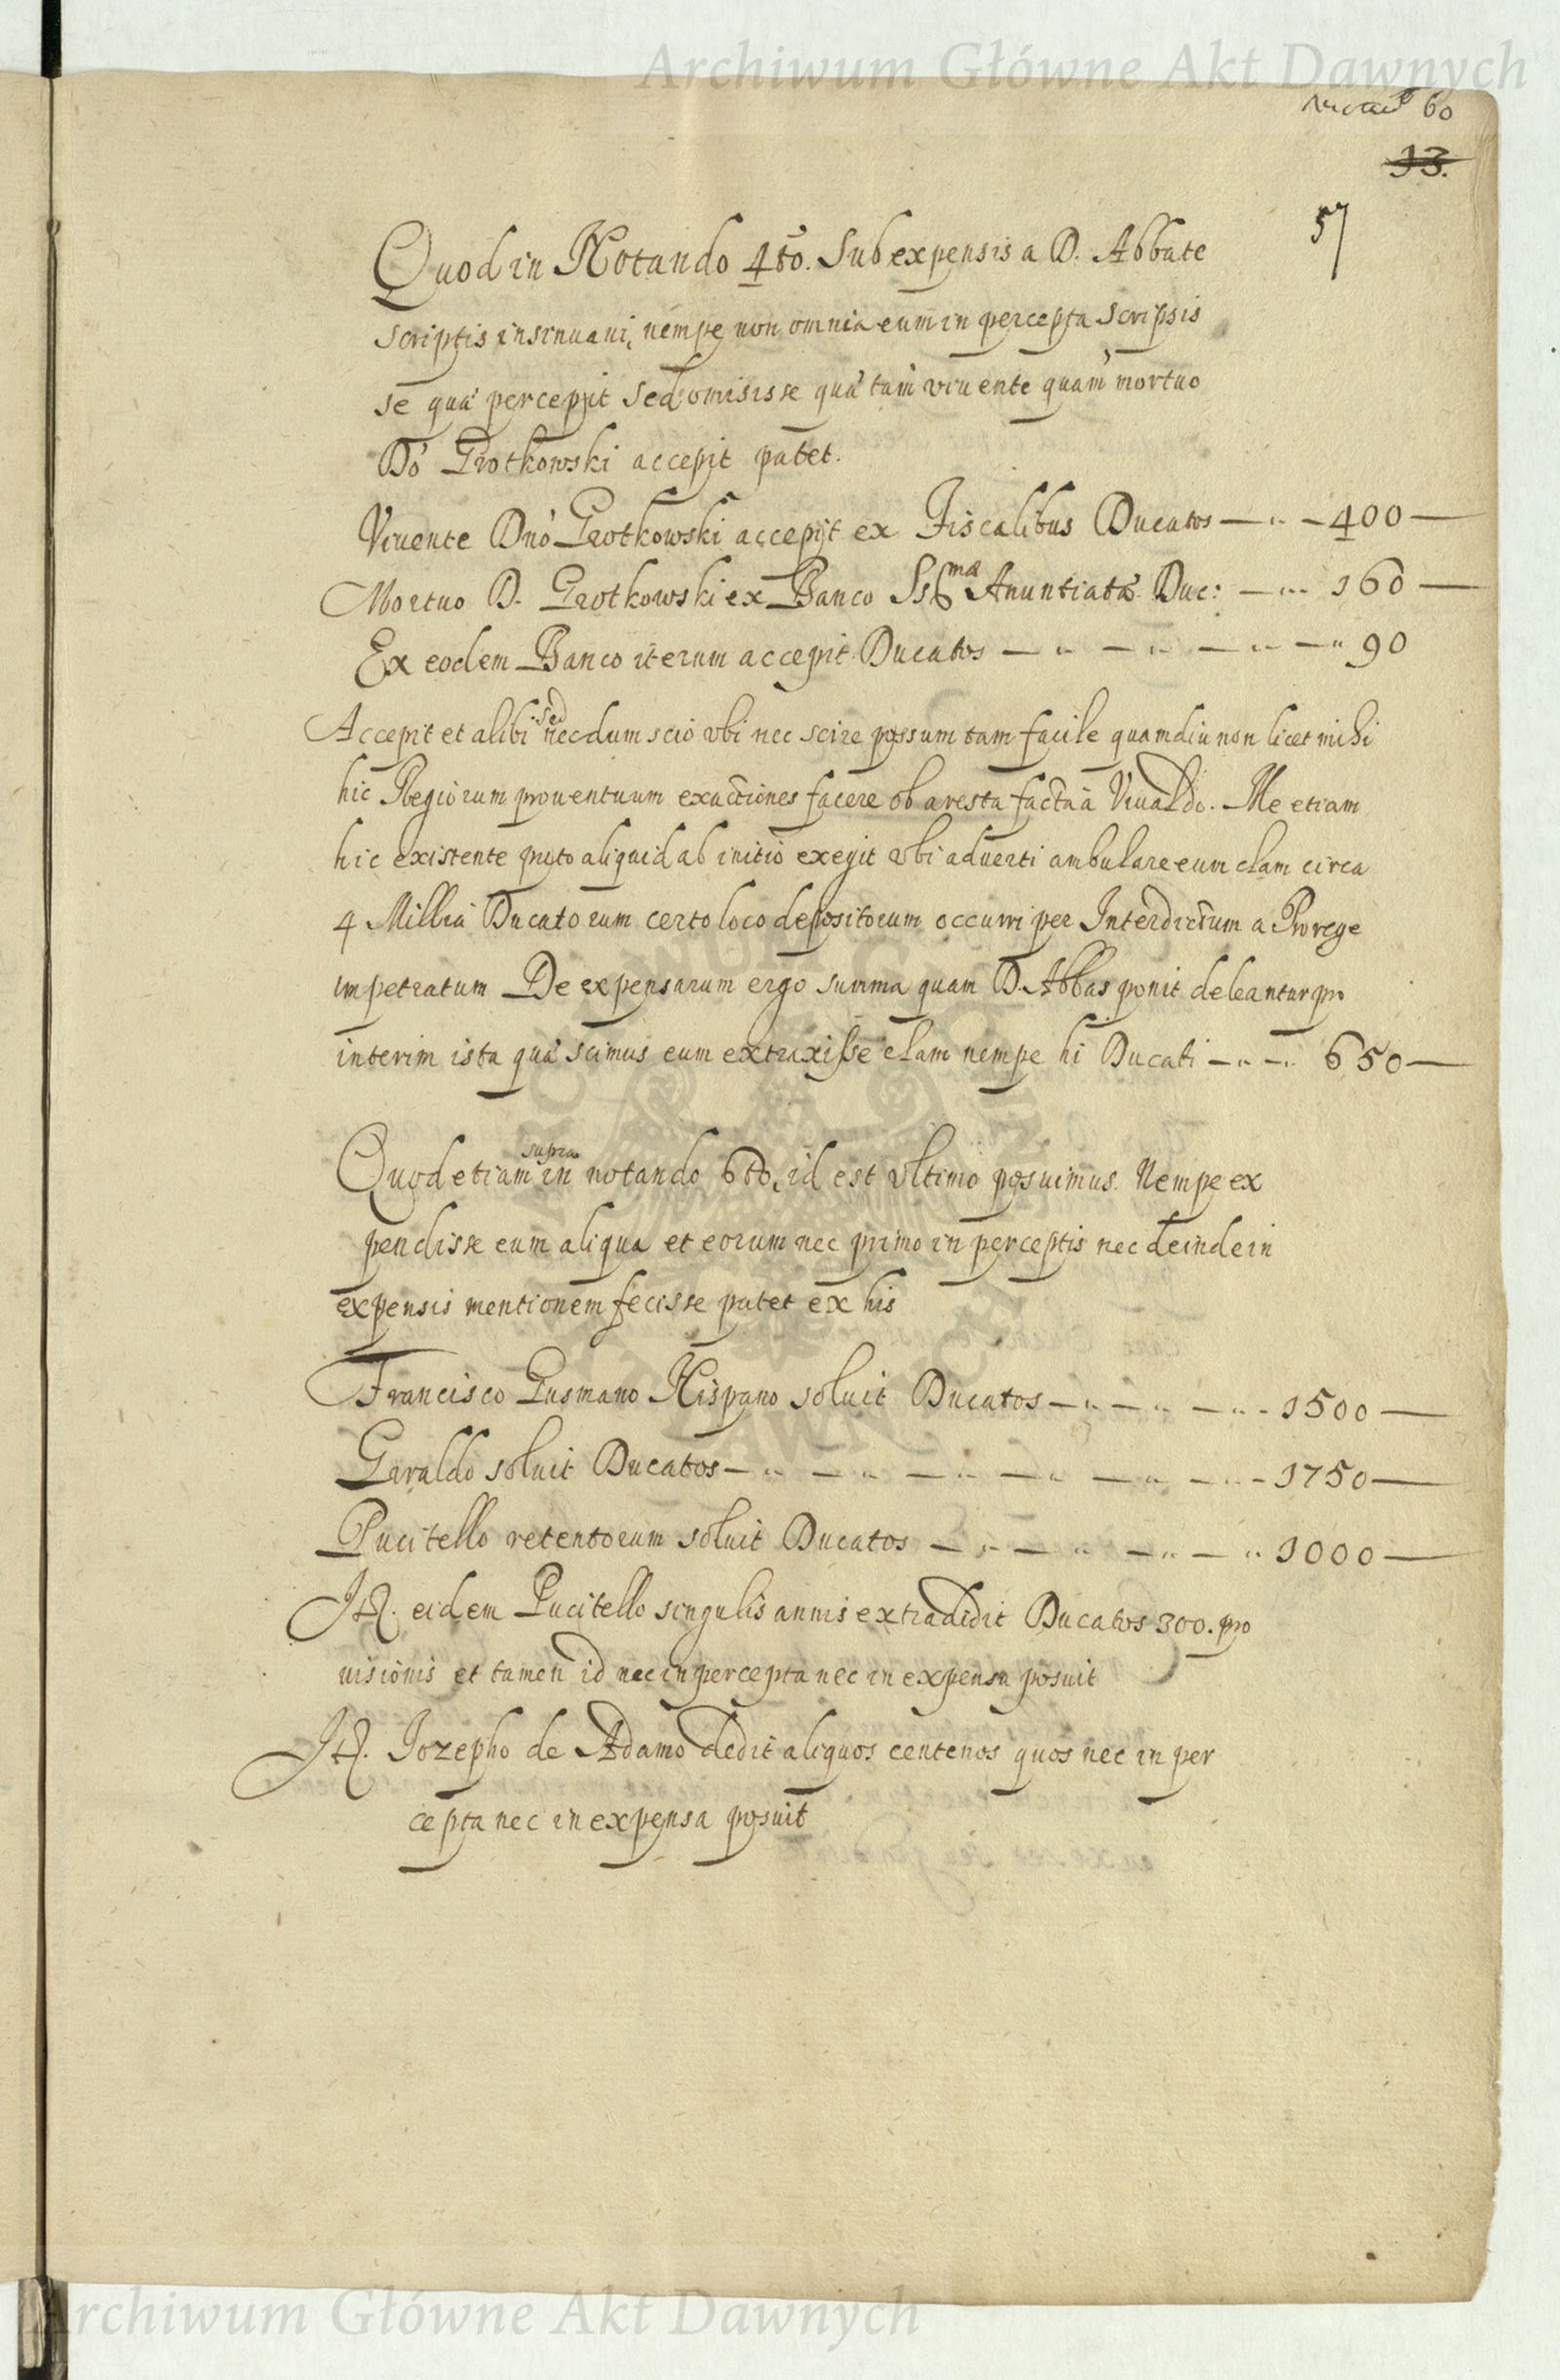 Archiwum Główne Akt Dawnych
60
13.
57
Quod in Notando 4to. Sub expensis a D. Abbate
scriptis insinuaui, nempe non omnia eum in percepta Scripsis
se quæ percepit sed omisisse quæ tam viuente quam mortuo
Dó Grotkowski accepit patet.
Viuente Dnó Grotkowski accepit ex Fiscalibus Ducatos — 400 —
Mortuo D. Grotkowski ex Banco Ssmæ Anuntiatæ Duc: — 160 —
Ex eodem Banco iterum accepit Ducatos — 90
Accepit et alibi sed necdum scio vbi nec scire possum tam facile quamdiu non licet mihi
hic Regiorum prouentuum exactiones facere ob aresta facta à Viualdo. Me etiam
hic existente puto aliquid ab initio exegit vbi aduerti ambulare eum clam circa
4 Millia Ducatorum certo loco depositorum occurri per Interdictum a Prorege
impetratum De expensarum ergo summa quam D. Abbas ponit deleantur pro
interim ista quæ scimus eum extraxisse clam nempe hi Ducati — 650 —
Quod etiam supra in notando 6to, id est vltimo posuimus. Nempe ex
pendisse eum aliqua et eorum nec primo in perceptis nec deinde in
expensis mentionem fecisse patet ex his
Francisco Gusmano Hispano soluit Ducatos — 1500 —
Garaldo soluit Ducatos — 1750 —
Pucitello retentorum soluit Ducatos — 1000 —
It. eidem Pucitello singulis annis extradidit Ducatos 300. pro
uisionis et tamen id nec in percepta nec in expensa posuit
It. Iozepho de Adamo dedit aliquos centenos quos nec in per
cepta nec in expensa posuit
Archiwum Główne Akt Dawnych